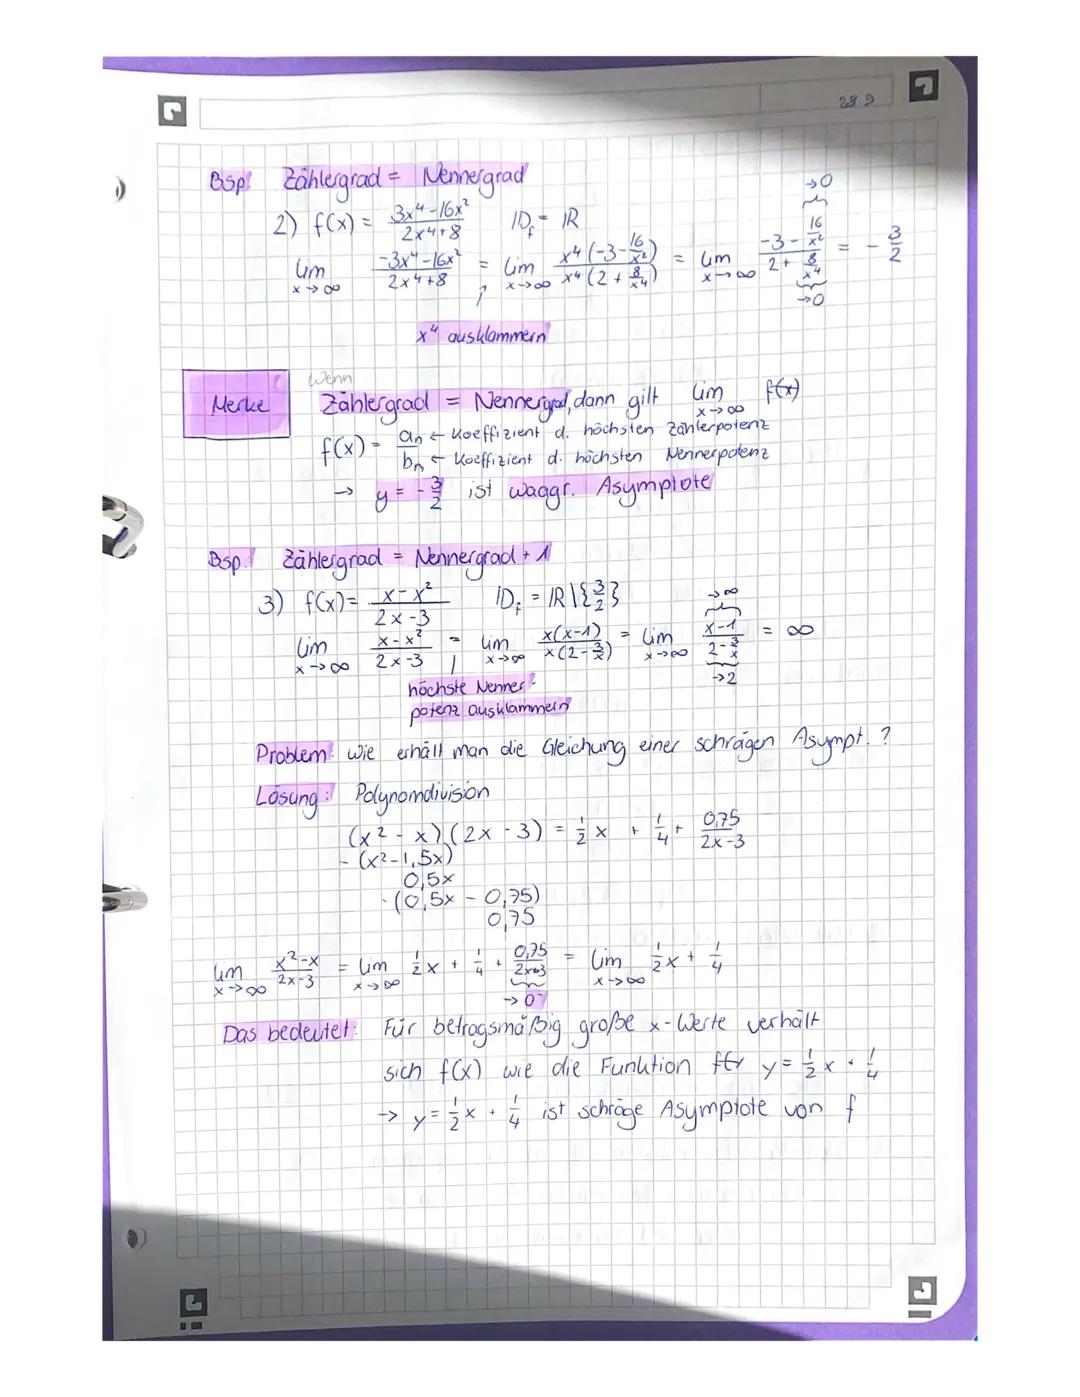 28 9
Bsp! Zählergrad = Nennergrad
2) f(x) = (3x⁴-16x²)/(2x⁴+8) ID_f = IR
lim x→∞ (-3x⁴-16x²)/(2x⁴+8) = lim x→∞ (x⁴(-3-16/x²))/(x⁴(2+8/x⁴)) = lim x→∞ (-3-16/x² →0)/(2+8/x⁴ →0) = -3/2
x⁴ ausklammern
Wenn
Merke Zählergrad = Nennergrad, dann gilt lim x→∞ f(x)
f(x) = aₙ ← Koeffizient d. höchsten Zählerpotenz
bₙ ← Koeffizient d. höchsten Nennerpotenz
→ y = -3/2 ist waggr. Asymptote
Bsp! Zählergrad = Nennergrad + 1
3) f(x) = (x-x²)/(2x-3) ID_f = IR\{3/2}
lim x→∞ (x-x²)/(2x-3) = lim x→∞ (x(x-1))/(x(2-3/x)) = lim x→∞ (x-1 →∞)/(2-3/x →2) = ∞
höchste Nenner-
potenz ausklammern
Problem: Wie erhält man die Gleichung einer schrägen Asympt. ?
Lösung: Polynomdivision
(x² - x):(2x - 3) = 1/2 x + 1/4 + 0,75/(2x-3)
- (x²-1,5x)
0,5x
- (0,5x - 0,75)
0,75
lim x→∞ (x²-x)/(2x-3) = lim x→∞ 1/2 x + 1/4 + 0,75/(2x-3) →0 = lim x→∞ 1/2 x + 1/4
Das bedeutet: Für betragsmäßig große x-Werte verhält
sich f(x) wie die Funktion y = 1/2 x + 1/4
→ y = 1/2 x + 1/4 ist schräge Asymptote von f